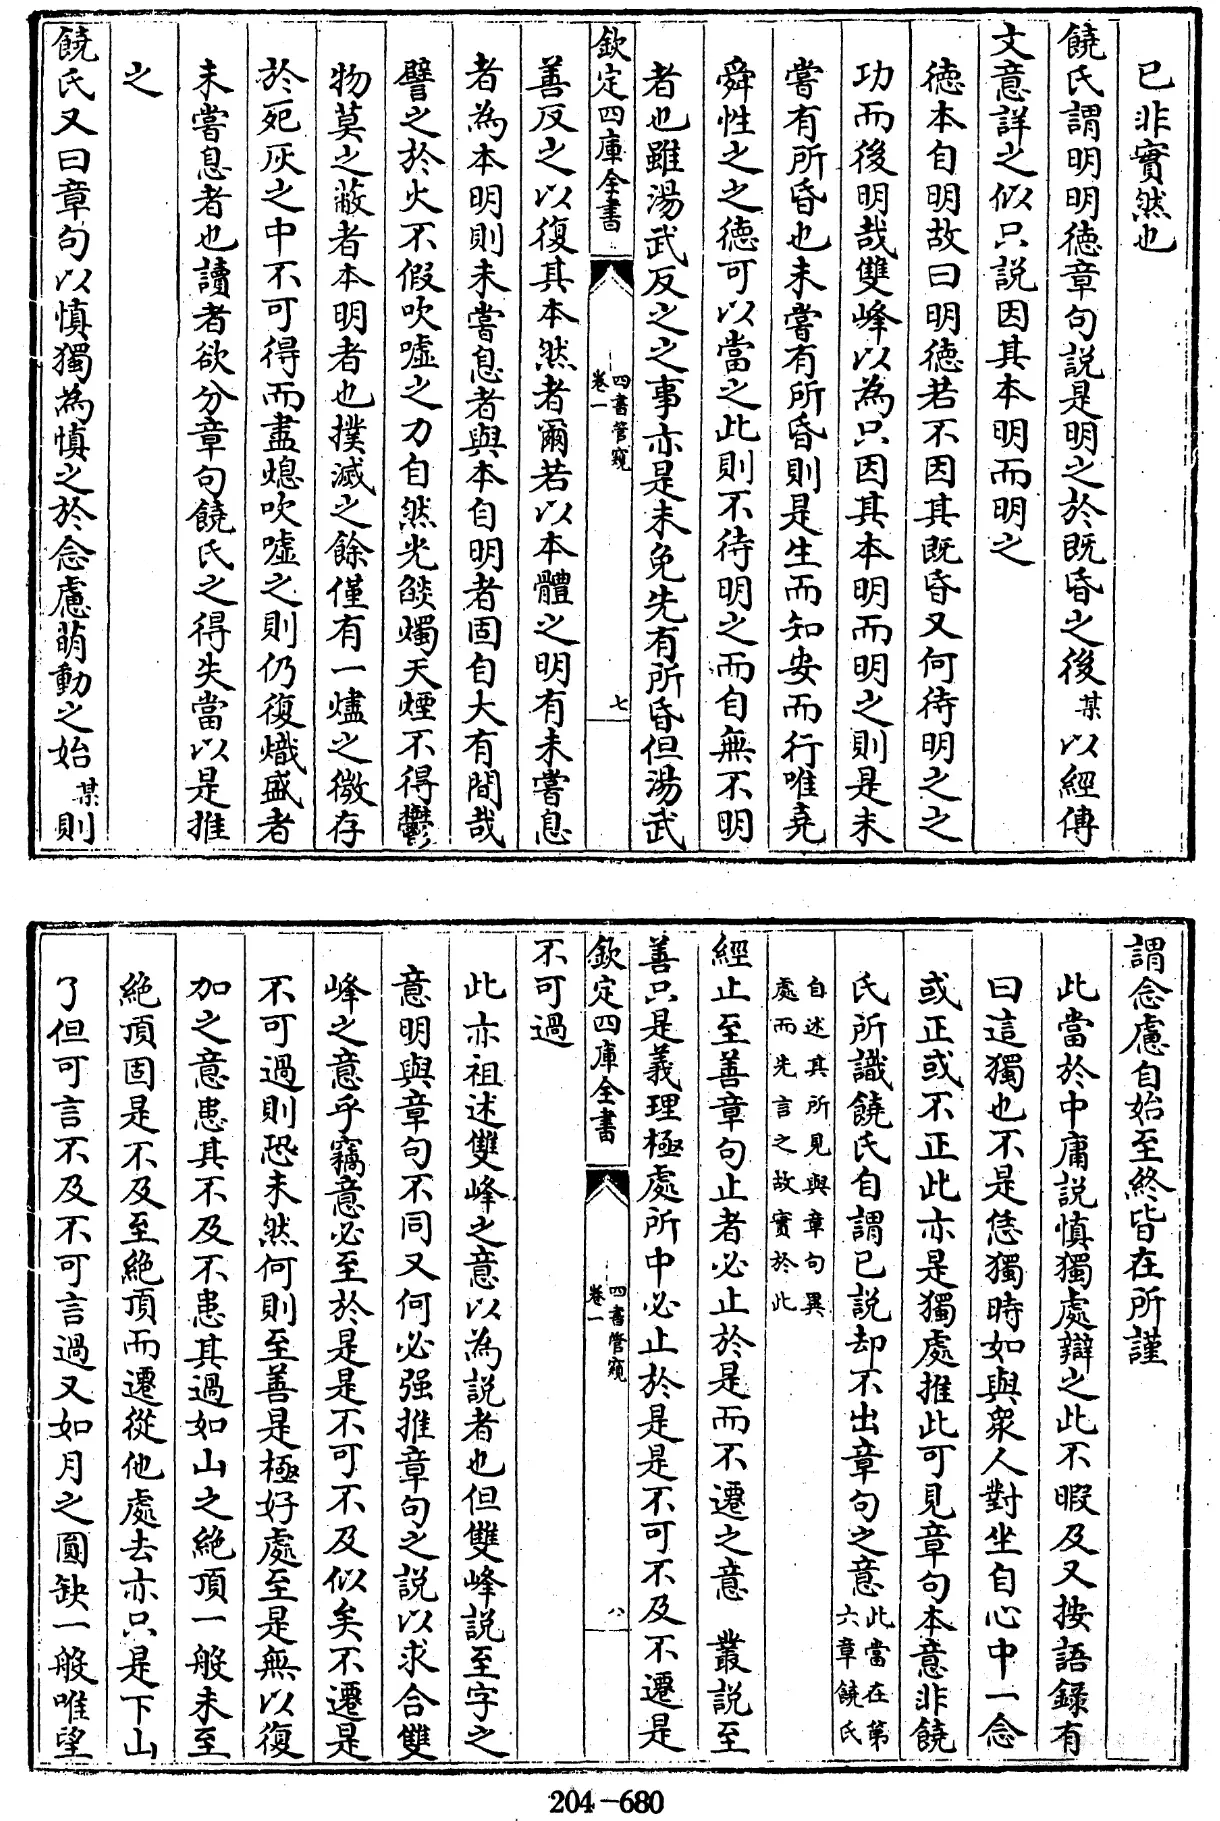 已非實然也
饒氏謂明明德章句説是明之於既昏之後某以經傳
文意詳之似只説因其本明而明之
德本自明故曰明德若不因其既昏又何待明之之
功而後明哉雙峰以為只因其本明而明之則是未
嘗有所昏也未嘗有所昏則是生而知安而行唯堯
舜性之之德可以當之此則不待明之而自無不明
者也雖湯武反之之事亦是未免先有所昏但湯武
欽定四庫全書
四書管窺
卷一
七
善反之以復其本然者爾若以本體之明有未嘗息
者為本明則未嘗息者與本自明者固自大有間哉
譬之於火不假吹噓之力自然光燄燭天煙不得鬱
物莫之蔽者本明者也撲滅之餘僅有一燼之微存
於死灰之中不可得而盡熄吹噓之則仍復熾盛者
未嘗息者也讀者欲分章句饒氏之得失當以是推
之
饒氏又曰章句以慎獨為慎之於念慮萌動之始某則
謂念慮自始至終皆在所謹
此當於中庸説慎獨處辯之此不暇及又按語録有
曰這獨也不是恁獨時如與衆人對坐自心中一念
或正或不正此亦是獨處推此可見章句本意非饒
氏所識饒氏自謂已説却不出章句之意此當在第
六章饒氏
自述其所見與章句異
處而先言之故實於此
經止至善章句止者必止於是而不遷之意 叢説至
善只是義理極處所中必止於是是不可不及不遷是
欽定四庫全書
四書管窺
卷一
八
不可過
此亦祖述雙峰之意以為説者也但雙峰説至字之
意明與章句不同又何必强推章句之説以求合雙
峰之意乎竊意必至於是是不可不及似矣不遷是
不可過則恐未然何則至善是極好處至是無以復
加之意患其不及不患其過如山之絶頂一般未至
絶頂固是不及至絶頂而遷從他處去亦只是下山
了但可言不及不可言過又如月之圓缺一般唯望
204-680